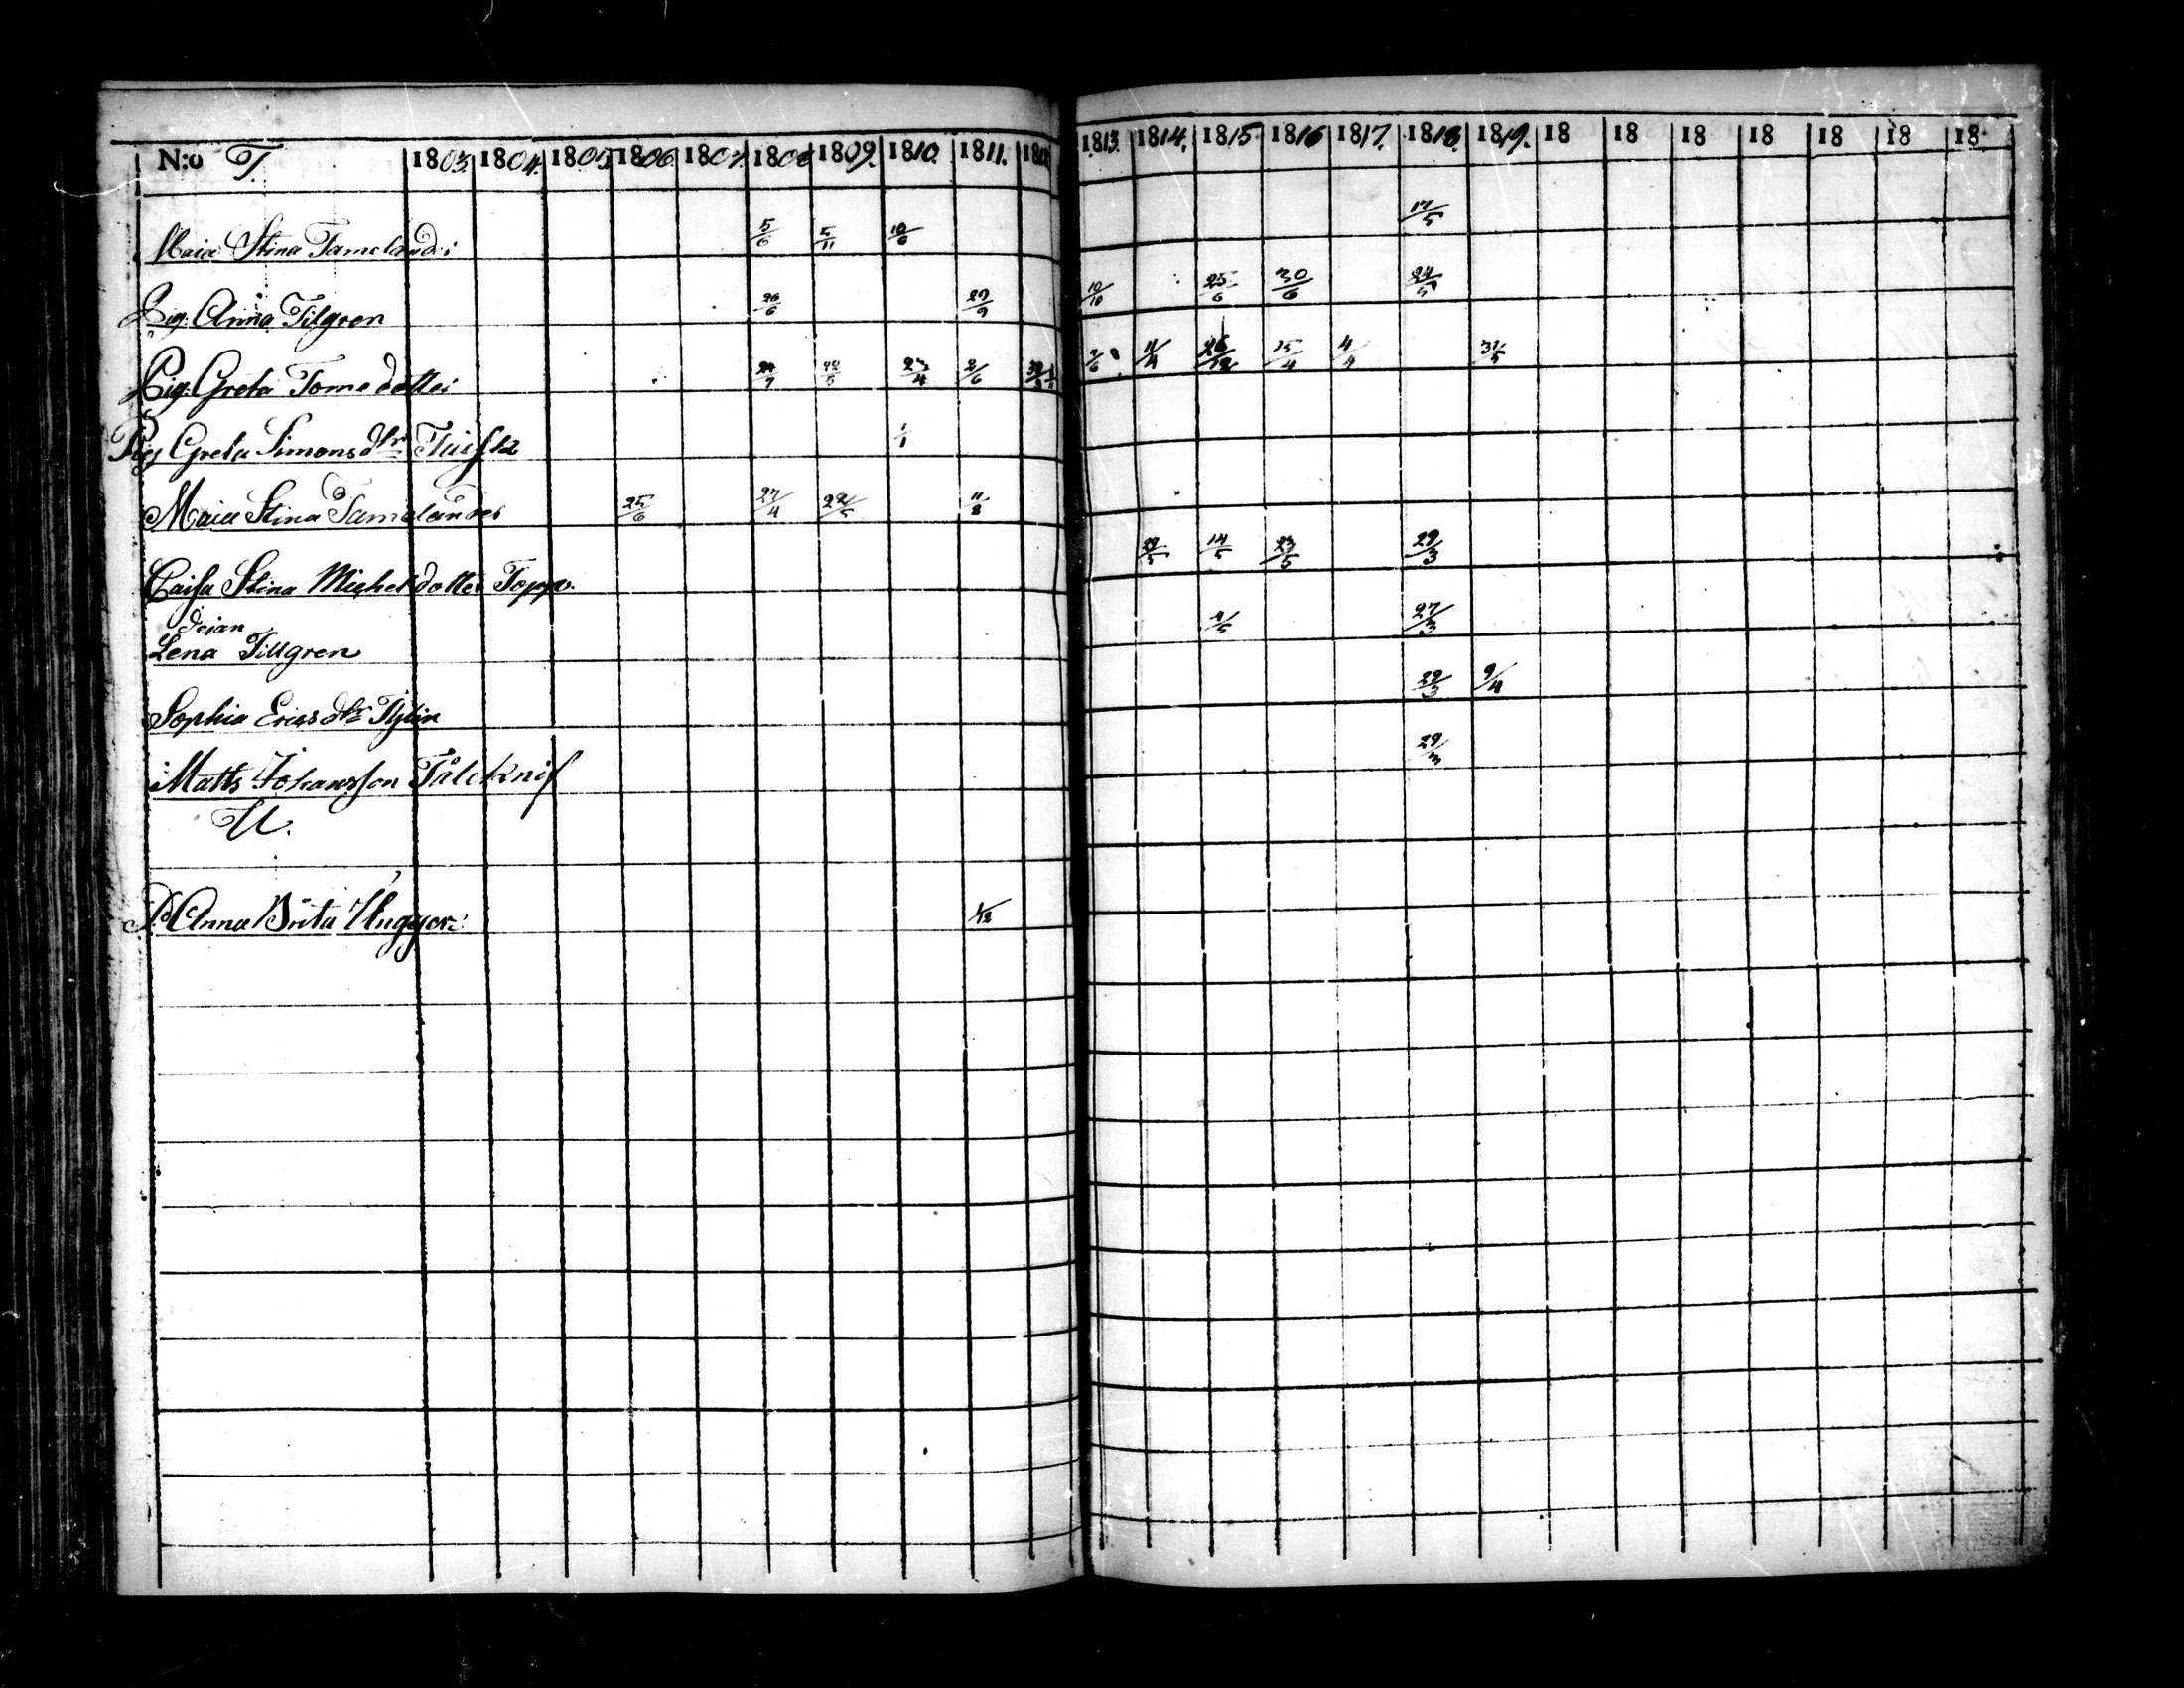 N:o T. 1803. 1804. 1805. 1806. 1807. 1808 1809. 1810. 1811. 1813. 1814. 1815 1816 1817. 1818. 1819. 18 18 18 18 18 18 18
Maia Stina Tamelander 5/6 5/11 10/6 17/5
Pig. Anna Tilgren 26/6 27/9 10/10 25/6 30/6 24/5
Pig. Greta Tomedotter 22/5 23/4 2/6 11/4 26/12 15/4 4/4 31/5
Pig Greta Simons dtr 1/1
Maia Stina Tamelander 25/6 27/4 22/5 11/8
Caisa Stina Michelsdotter Topp. 14/5 23/5 29/3
dejan
Lena Tillgren 4/5 27/3
Sophia Ericsdtr 29/3 9/4
Matts Johansson Tålcknif 29/3
U.
P. Anna Brita 1/12